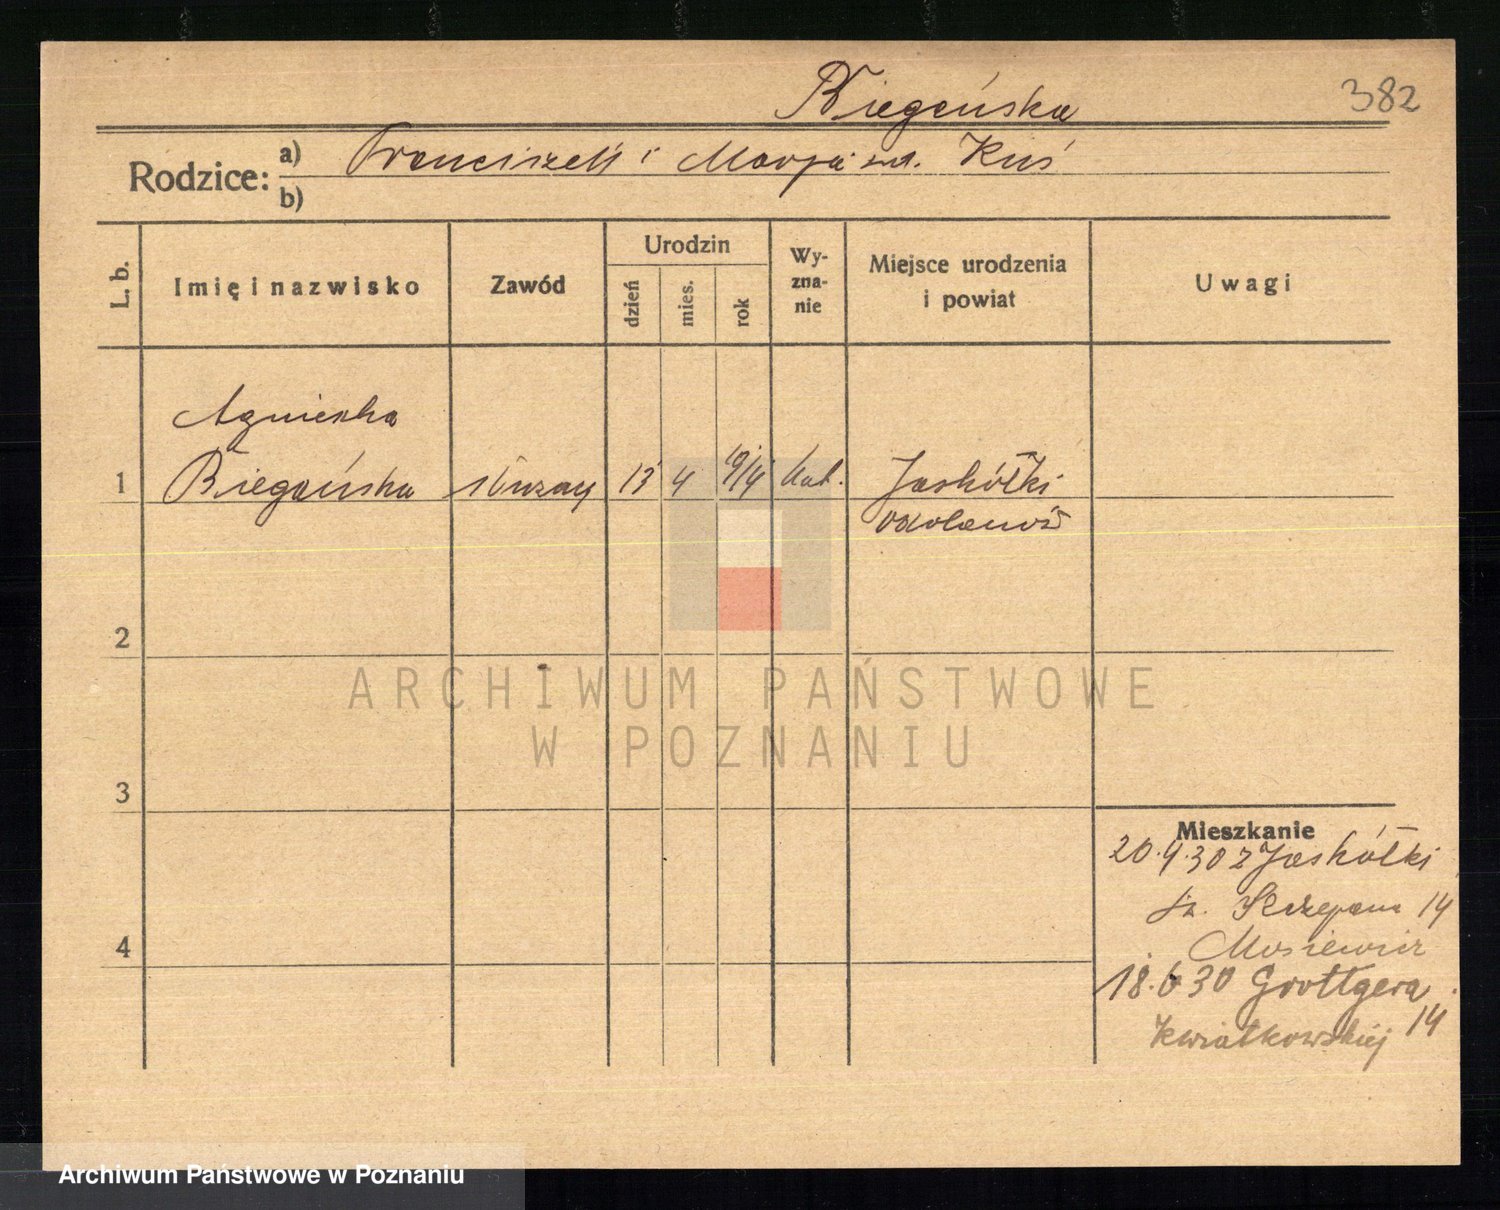 Biegańska
382
Rodzice:
a) Franciszek i Marja zd. Kuś
b)
L. b.
Imię i nazwisko
Zawód
Urodzin
dzień
mies.
rok
Wy-
zna-
nie
Miejsce urodzenia
i powiat
Uwagi
Agnieszka
1 Biegańska służąc 13 4 914 kat. Jaskółki
odolanów
2
3
4
ARCHIWUM PAŃSTWOWE
W POZNANIU
Mieszkanie
20.4.30 z Jaskółki
Szczepana 14
18.6 30 Grottgera
14
Kwiatkowskiej
Archiwum Państwowe w Poznaniu